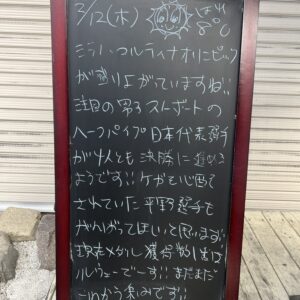 2/12(木) はれ 8°C
ミラノ・コルティナオリンピック
が盛り上がっていますね!!
注目の男子スノーボードの
ハーフパイプ日本代表選手
が4人とも決勝に進める
ようです!! ケガを心配
されていた平野選手も
がんばってほしいと思います!!
現在メダル獲得数1位は
ノルウェーでーす!! まだまだ
これから楽しみです!!